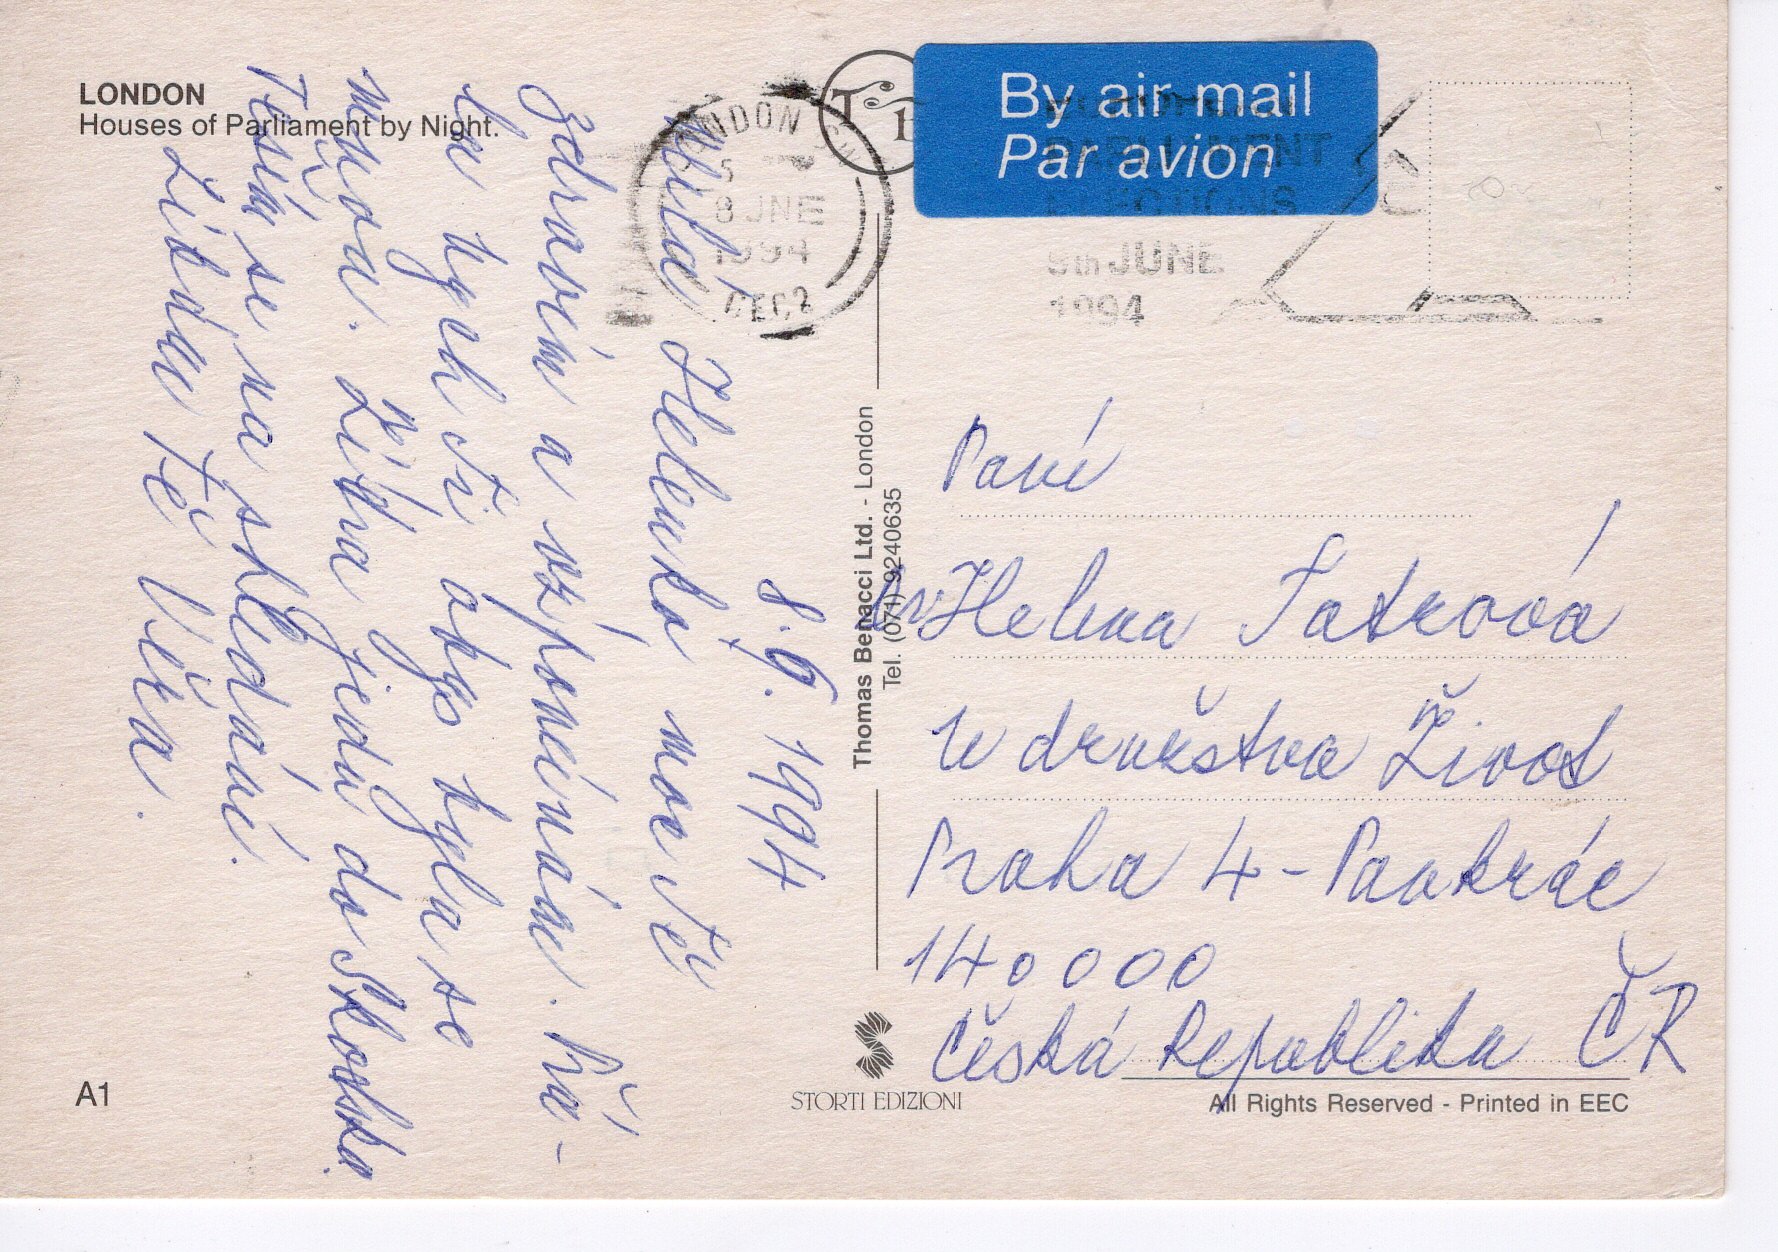 LONDON
Houses of Parliament by Night.
8.6. 1994
Milá Helenko, moc Tě
zdravím a vzpomínám. Přá-
la bych si abys byla se
mnou. Zítra jedu do Skotska.
Těším se na shledání.
Líbám Tě Věra.
LONDON SW
5
8 JNE
1994
GEC2
T
1
By air mail
Par avion
EUROPEAN
PARLIAMENT
ELECTIONS
9th JUNE
1994
Thomas Benacci Ltd. - London
Tel. (071) 9240635
Paní
Dr Helena Tatrová
U družstva Život
Praha 4 - Pankrác
140000
Česká Republika ČR
A1
STORTI EDIZIONI
All Rights Reserved - Printed in EEC